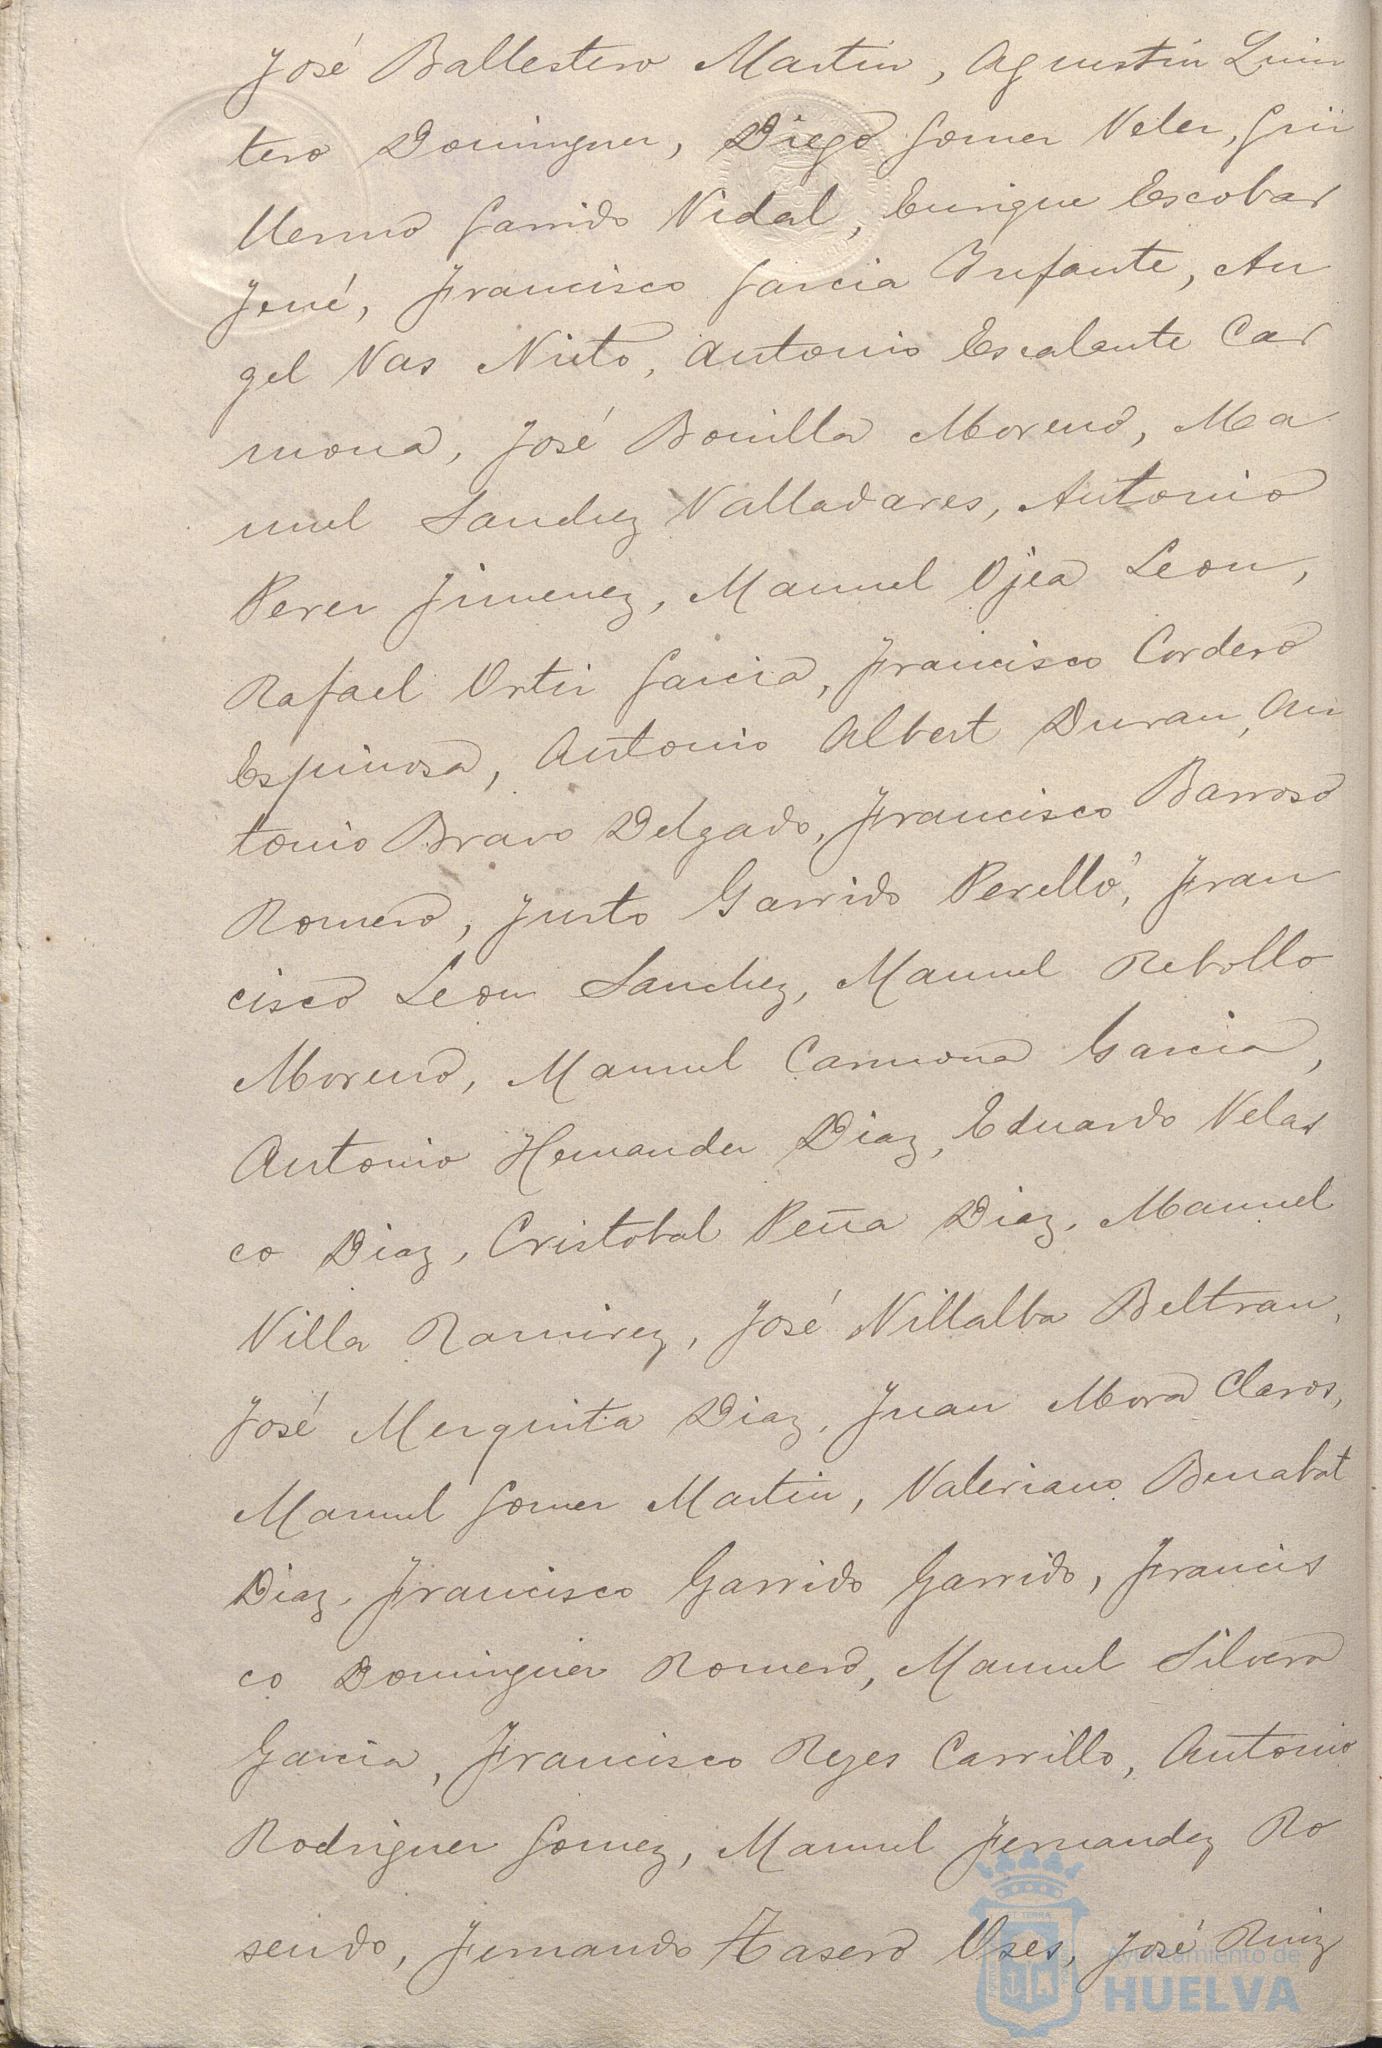 José Ballestero Martin, Agustin Quin
tero Dominguez, Diego Gomez Velez, Gui
llermo Garrido Vidal, Enrique Escobar
Jené, Francisco Garcia Infante, An
gel Vas Nieto, Antonio Escalante Car
mona, José Bonilla Moreno, Ma
nuel Sanchez Valladares, Antonio
Perez Jimenez, Manuel Ojea Leon,
Rafael Ortiz Garcia, Francisco Cordero
Espinosa, Antonio Albert Duran, An
tonio Bravo Delgado, Francisco Barroso
Romero, Justo Garrido Perelló, Fran
cisco Leon Sanchez, Manuel Rebollo
Moreno, Manuel Carmona Garcia,
Antonio Hernandez Diaz, Eduardo Velas
co Diaz, Cristobal Peña Diaz, Manuel
Villa Ramirez, José Villalba Beltran,
José Mezquita Diaz, Juan Mora Claros,
Manuel Gomez Martin, Valeriano Benabat
Diaz, Francisco Garrido Garrido, Francis
co Dominguez Romero, Manuel Silvera
Garcia, Francisco Reyes Carrillo, Antonio
Rodriguez Gomez, Manuel Fernandez Ro
sendo, Fernando Tasero Oses, José Ruiz
Ayuntamiento de
HUELVA